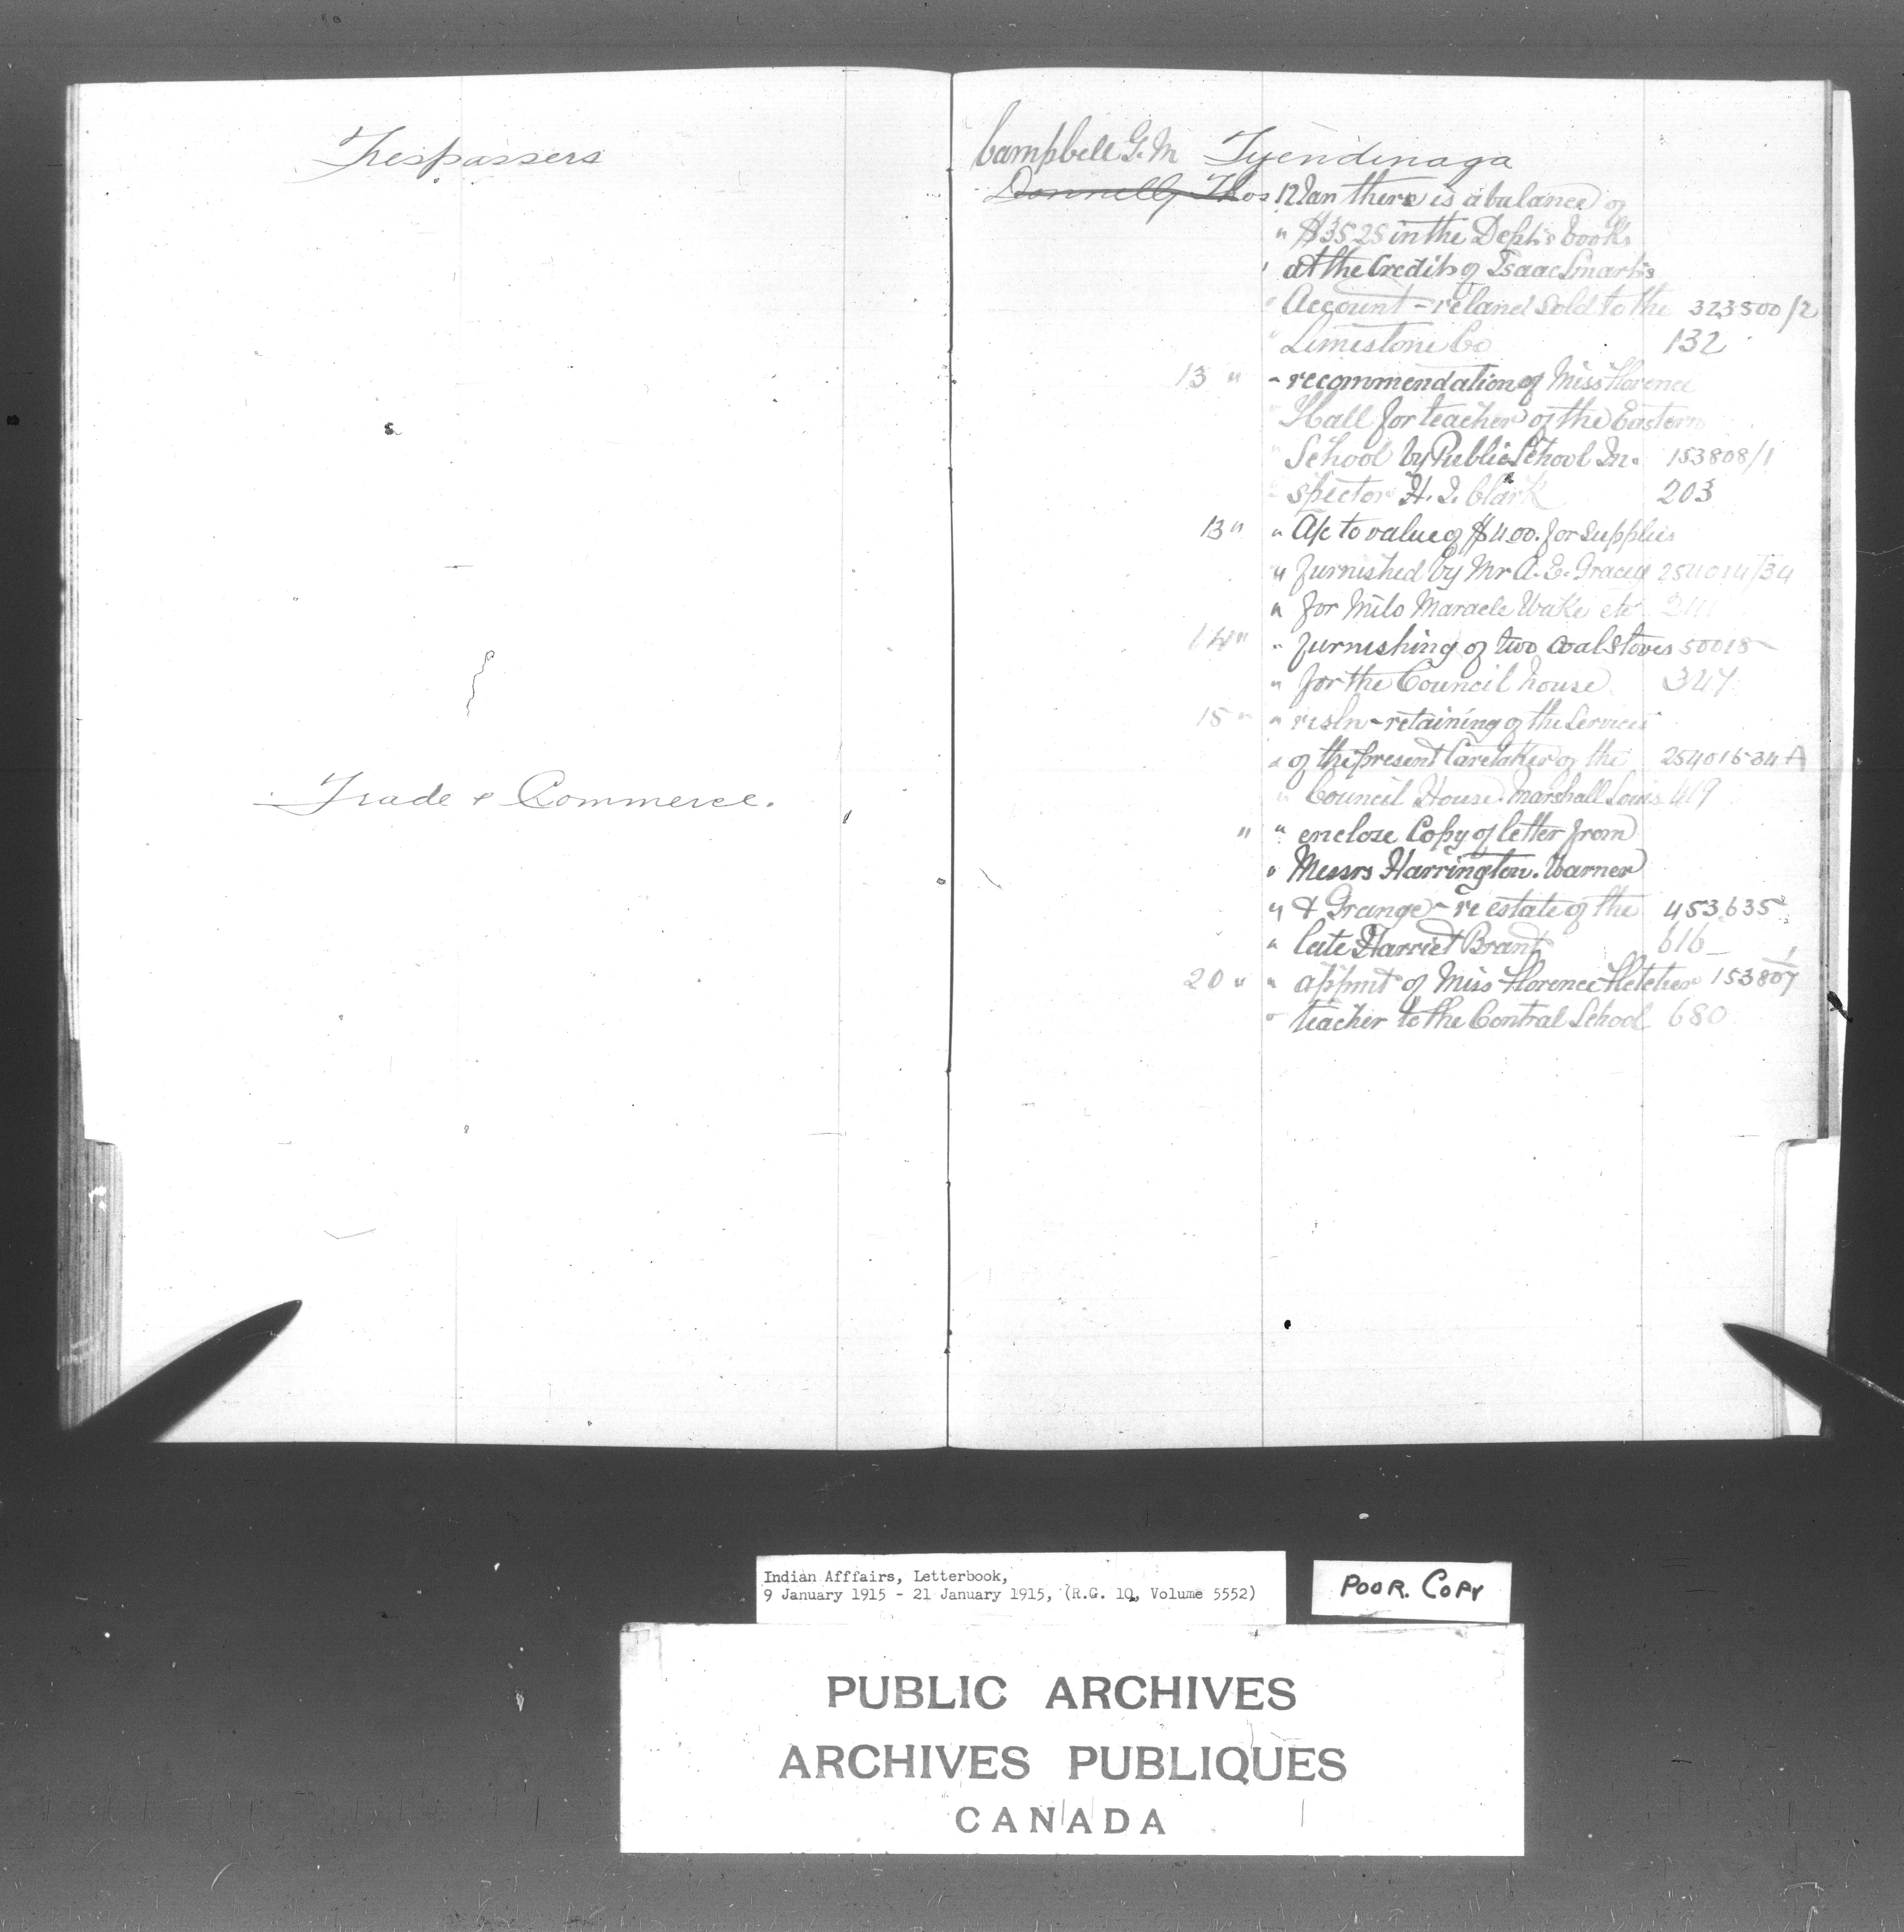 Trespassers
Trade & Commerce.
Campbell G. M Tyendinaga
Donnelly Thos 12 Jan there is a balance of
" $35 25 in the Dept's books
" at the Credit of Isaac Smart's
" Account - re land sold to the 323500/2
" Limestone Co 132
13 " - recommendation of Miss Florence
" Hall for teacher of the Eastern
" School by Public School In- 153808/1
" spector H. J. Clark 203
13 " " A/c to value of $4.00. for supplies
" furnished by Mr A. E. Gracey 254014/34
" for Milo Maracle Wake etc
14 " " furnishing of two coal stoves 50018-
" for the Council house 347
15 " " resln - retaining of the Services
" of the present Caretaker of the 254015-34 A
" Council House. Marshall Louis 419
" " enclose Copy of letter from
" Messrs Harrington. Warner
" & Grange - re estate of the 453,635
" late Harriet Brant 616
20 " " appmt of Miss Florence Fletcher 153807
" teacher to the Central School 680
Indian Afffairs, Letterbook,
9 January 1915 - 21 January 1915, (R.G. 10, Volume 5552)
POOR. COPY
PUBLIC ARCHIVES
ARCHIVES PUBLIQUES
CANADA